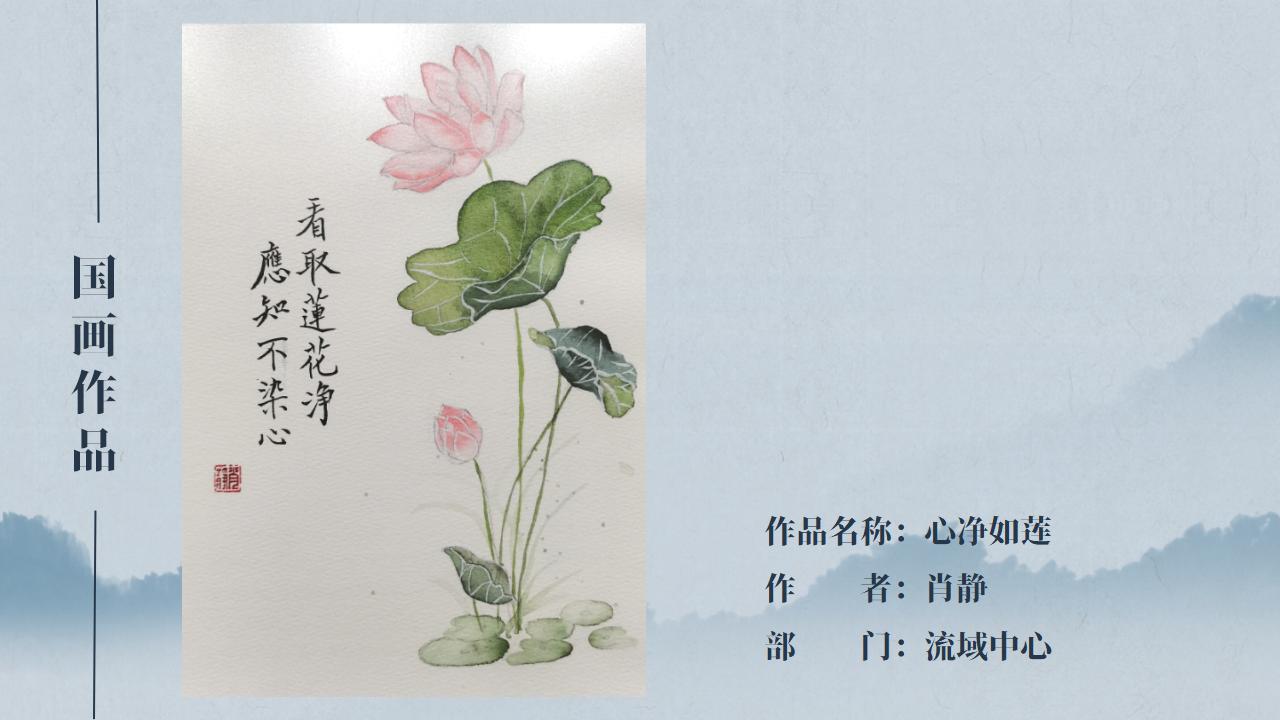 国画作品
看取蓮花净
應知不染心
作品名称：心净如莲
作　　者：肖静
部　　门：流域中心